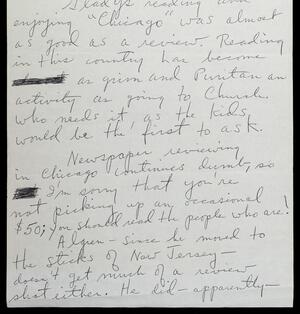 Gladys reading and
enjoying "Chicago" was almost
as good as a review. Reading
in this country has become
as grim and Puritan an
activity as going to Church.
Who needs it, as the kids,
would be the first to ask.
Newspaper reviewing
in Chicago continues dumb, so
I'm sorry that you're
not picking up an occasional
$50; you should read the people who are!
Algren — since he moved to
the sticks of New Jersey —
doesn't get much of a review
shot either. He did — apparently —